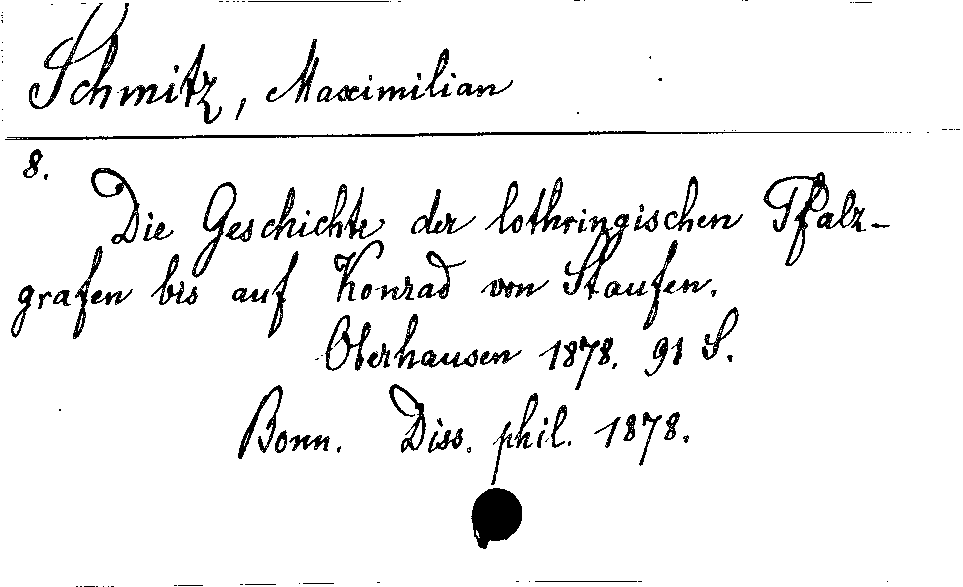 Schmitz, Maximilian
8.
Die Geschichte der lothringischen Pfalz-
grafen bis auf Konrad von Staufen.
Oberhausen 1878. 91 S.
Bonn. Diss. phil. 1878.